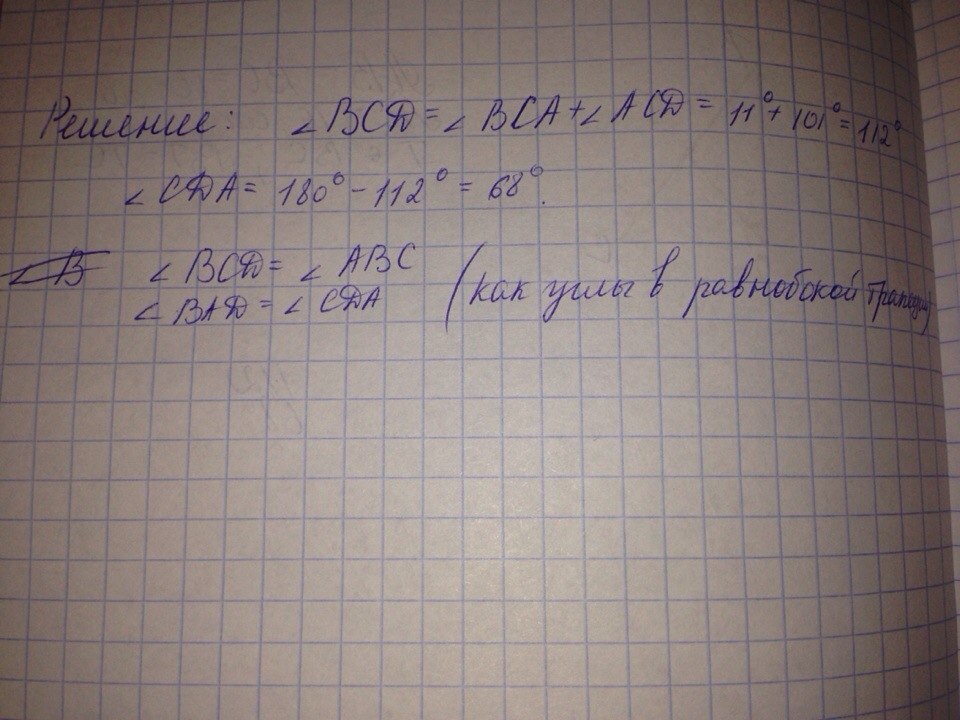 Решение: ∠BCD = ∠BCA + ∠ACD = 11° + 101° = 112°
∠CDA = 180° - 112° = 68°.
∠B ∠BCD = ∠ABC
∠BAD = ∠CDA (как углы в равнобской трапеции)